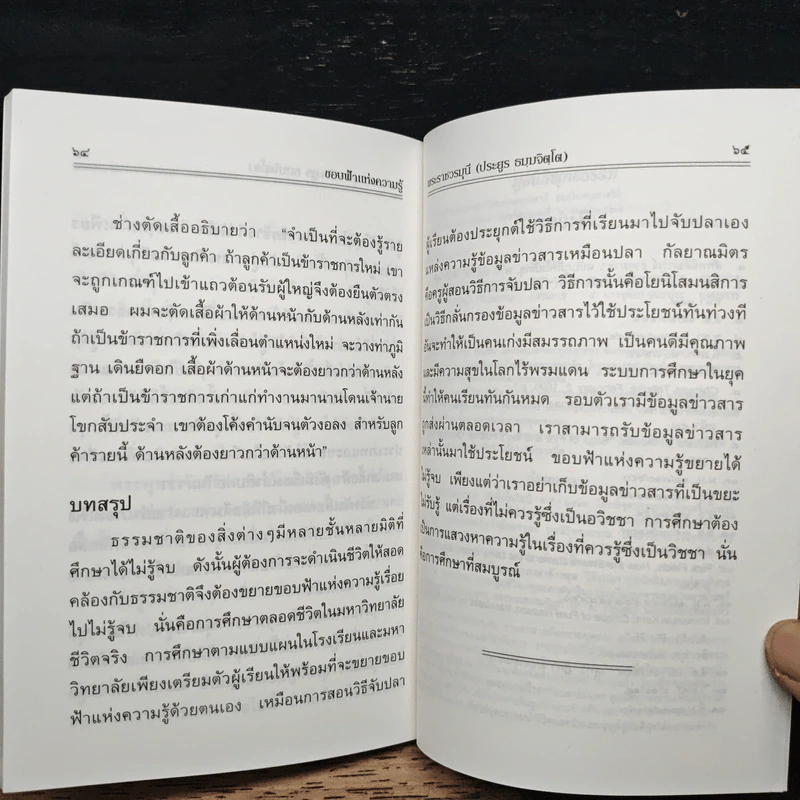 ๖๔
ขอบฟ้าแห่งความรู้
ช่างตัดเสื้ออธิบายว่า "จำเป็นที่จะต้องรู้ราย
ละเอียดเกี่ยวกับลูกค้า ถ้าลูกค้าเป็นข้าราชการใหม่ เขา
จะถูกเกณฑ์ไปเข้าแถวต้อนรับผู้ใหญ่จึงต้องยืนตัวตรง
เสมอ ผมจะตัดเสื้อผ้าให้ด้านหน้ากับด้านหลังเท่ากัน
ถ้าเป็นข้าราชการที่เพิ่งเลื่อนตำแหน่งใหม่ จะวางท่าภูมิ
ฐาน เดินยืดอก เสื้อผ้าด้านหน้าจะต้องยาวกว่าด้านหลัง
แต่ถ้าเป็นข้าราชการเก่าแก่ทำงานมานานโดนเจ้านาย
โขกสับประจำ เขาต้องโค้งคำนับจนตัวงอลง สำหรับลูก
ค้ารายนี้ ด้านหลังต้องยาวกว่าด้านหน้า"
บทสรุป
ธรรมชาติของสิ่งต่างๆมีหลายชั้นหลายมิติที่
ศึกษาได้ไม่รู้จบ ดังนั้นผู้ต้องการจะดำเนินชีวิตให้สอด
คล้องกับธรรมชาติจึงต้องขยายขอบฟ้าแห่งความรู้เรื่อย
ไปไม่รู้จบ นั่นคือการศึกษาตลอดชีวิตในมหาวิทยาลัย
ชีวิตจริง การศึกษาตามแบบแผนในโรงเรียนและมหา
วิทยาลัยเพียงเตรียมตัวผู้เรียนให้พร้อมที่จะขยายขอบ
ฟ้าแห่งความรู้ด้วยตนเอง เหมือนการสอนวิธีจับปลา
พระราชวรมุนี (ประยูร ธมฺมจิตฺโต)
๖๕
ผู้เรียนต้องประยุกต์ใช้วิธีการที่เรียนมาไปจับปลาเอง
แหล่งความรู้ข้อมูลข่าวสารเหมือนปลา กัลยาณมิตร
คือครูผู้สอนวิธีการจับปลา วิธีการนั้นคือโยนิโสมนสิการ
เป็นวิธีกลั่นกรองข้อมูลข่าวสารไว้ใช้ประโยชน์ทันท่วงที
อันจะทำให้เป็นคนเก่งมีสมรรถภาพ เป็นคนดีมีคุณภาพ
และมีความสุขในโลกไร้พรมแดน ระบบการศึกษาในยุค
นี้ทำให้คนเรียนทันกันหมด รอบตัวเรามีข้อมูลข่าวสาร
ถูกส่งผ่านตลอดเวลา เราสามารถรับข้อมูลข่าวสาร
เหล่านั้นมาใช้ประโยชน์ ขอบฟ้าแห่งความรู้ขยายได้
ไม่รู้จบ เพียงแต่ว่าเราอย่าเก็บข้อมูลข่าวสารที่เป็นขยะ
ไม่รับรู้ แต่เรื่องที่ไม่ควรรู้ซึ่งเป็นอวิชชา การศึกษาต้อง
เป็นการแสวงหาความรู้ในเรื่องที่ควรรู้ซึ่งเป็นวิชชา นั่น
คือการศึกษาที่สมบูรณ์